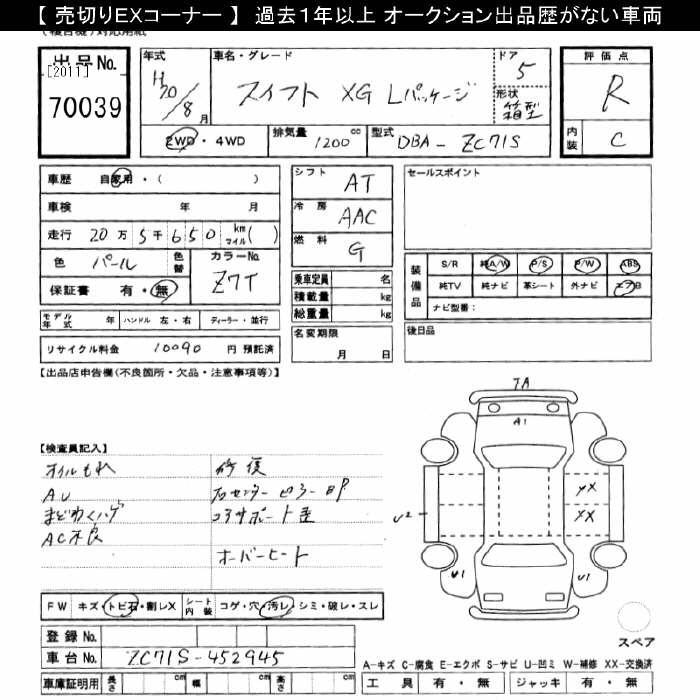 【 売切りEXコーナー 】 過去1年以上 オークション出品歴がない車両
出品No.
[2011]
70039
年式
H20/8月
車名・グレード
スイフト XG Lパッケージ
ドア
5
形状
箱型
2WD・4WD
排気量 1200cc
型式 DBA-ZC71S
評価点
R
内装 C
車歴 自家用・( )
車検 年 月
走行 20万5千650 km マイル( )
色 パール
色替
カラーNo. Z7T
保証書 有・無
モデル年式 年
ハンドル 左・右
ディーラー・並行
リサイクル料金 10090 円 預託済
シフト AT
冷房 AAC
燃料 G
乗車定員 名
積載量 kg
総重量 kg
名変期限
月 日
セールスポイント
装備品
S/R 純A/W P/S P/W ABS
純TV 純ナビ 革シート 外ナビ エアB
ナビ型番:
後日品
【出品店申告欄(不良箇所・欠品・注意事項等)】
【検査員記入】
オイルもれ
AU
まどわくハゲ
AC不良
修復
右センターピラーBP
コアサポート歪
オーバーヒート
7A
A1
XX
U2
U1
U1
スペア
FW キズ・トビ石・割レX
シート内装 コゲ・穴・汚レ・シミ・破レ・スレ
登録No.
車台No. ZC71S-452945
車庫証明用 長さ cm 幅 cm 高さ cm
A-キズ C-腐食 E-エクボ S-サビ U-凹ミ W-補修 XX-交換済
工具 有・無 ジャッキ 有・無